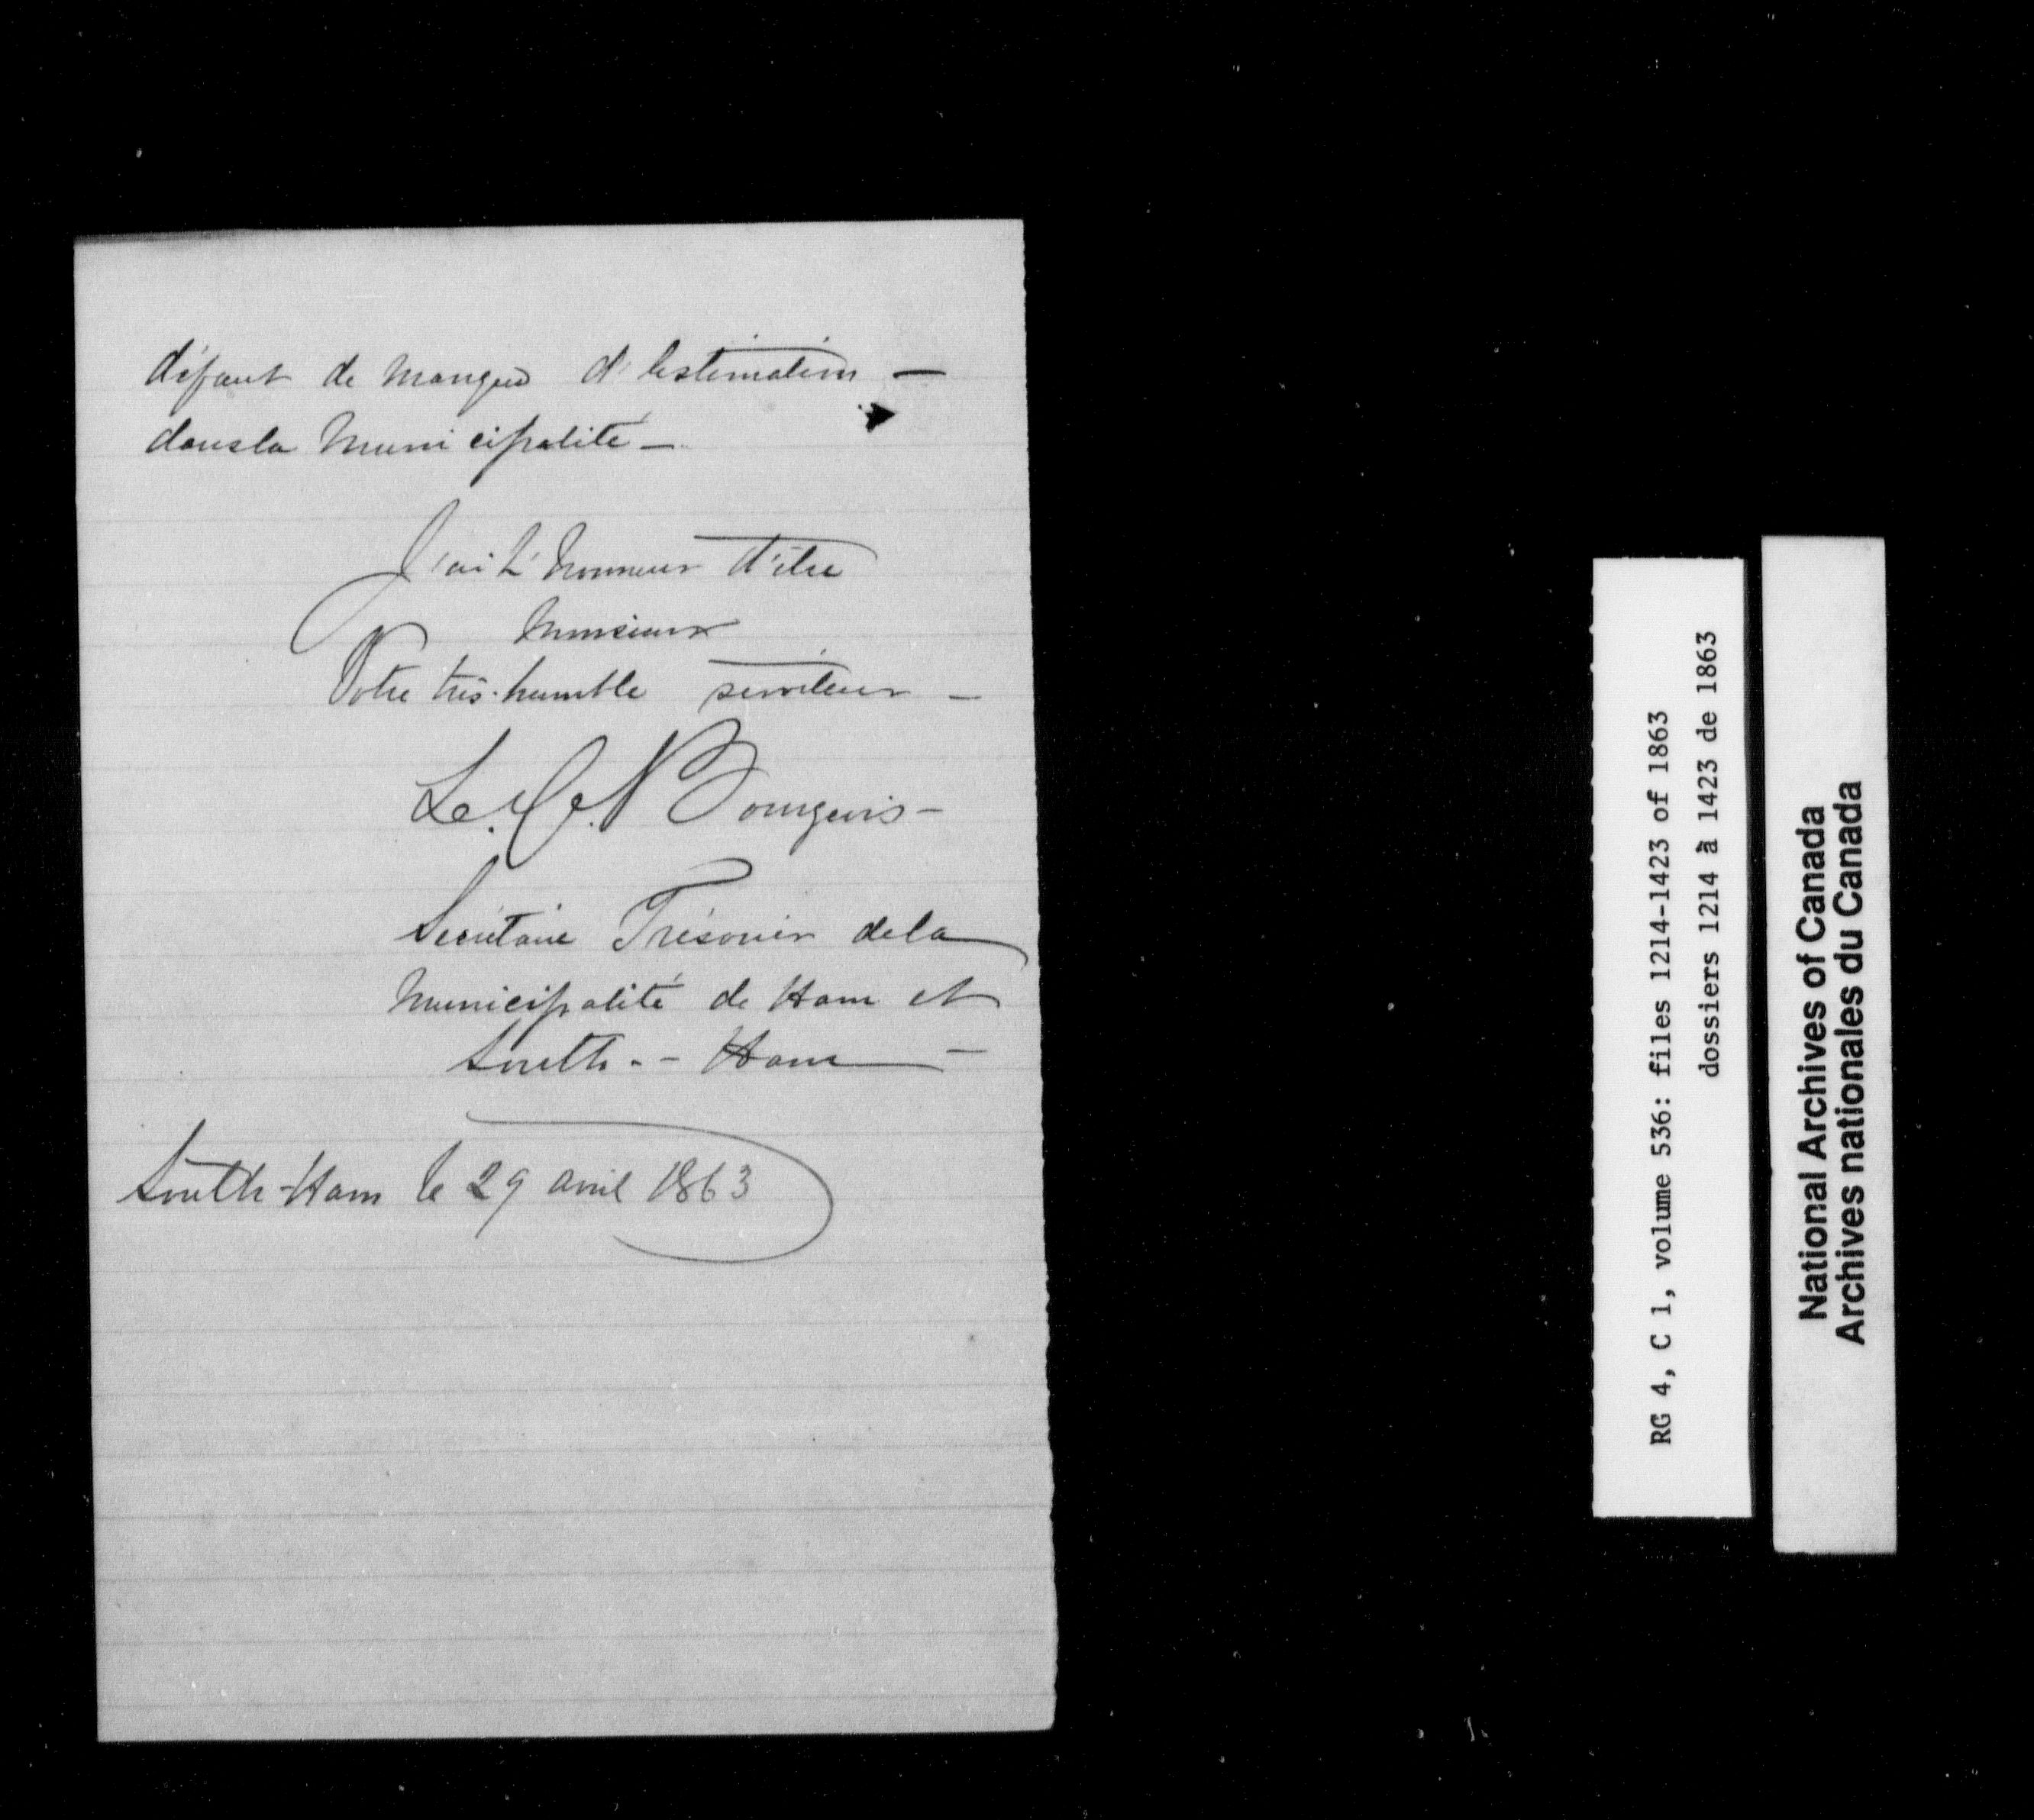 défaut de manque d'Estimation —
dans la Municipalité —
J'ai L'honneur d'être
Monsieur
Votre très-humble serviteur —
Le. C. N Bourgeois —
Secrétaire Trésorier de la
Municipalité de Ham et
South - - Ham —
South-Ham le 29 avril 1863
RG 4, C 1, volume 536: files 1214-1423 of 1863
dossiers 1214 à 1423 de 1863
National Archives of Canada
Archives nationales du Canada